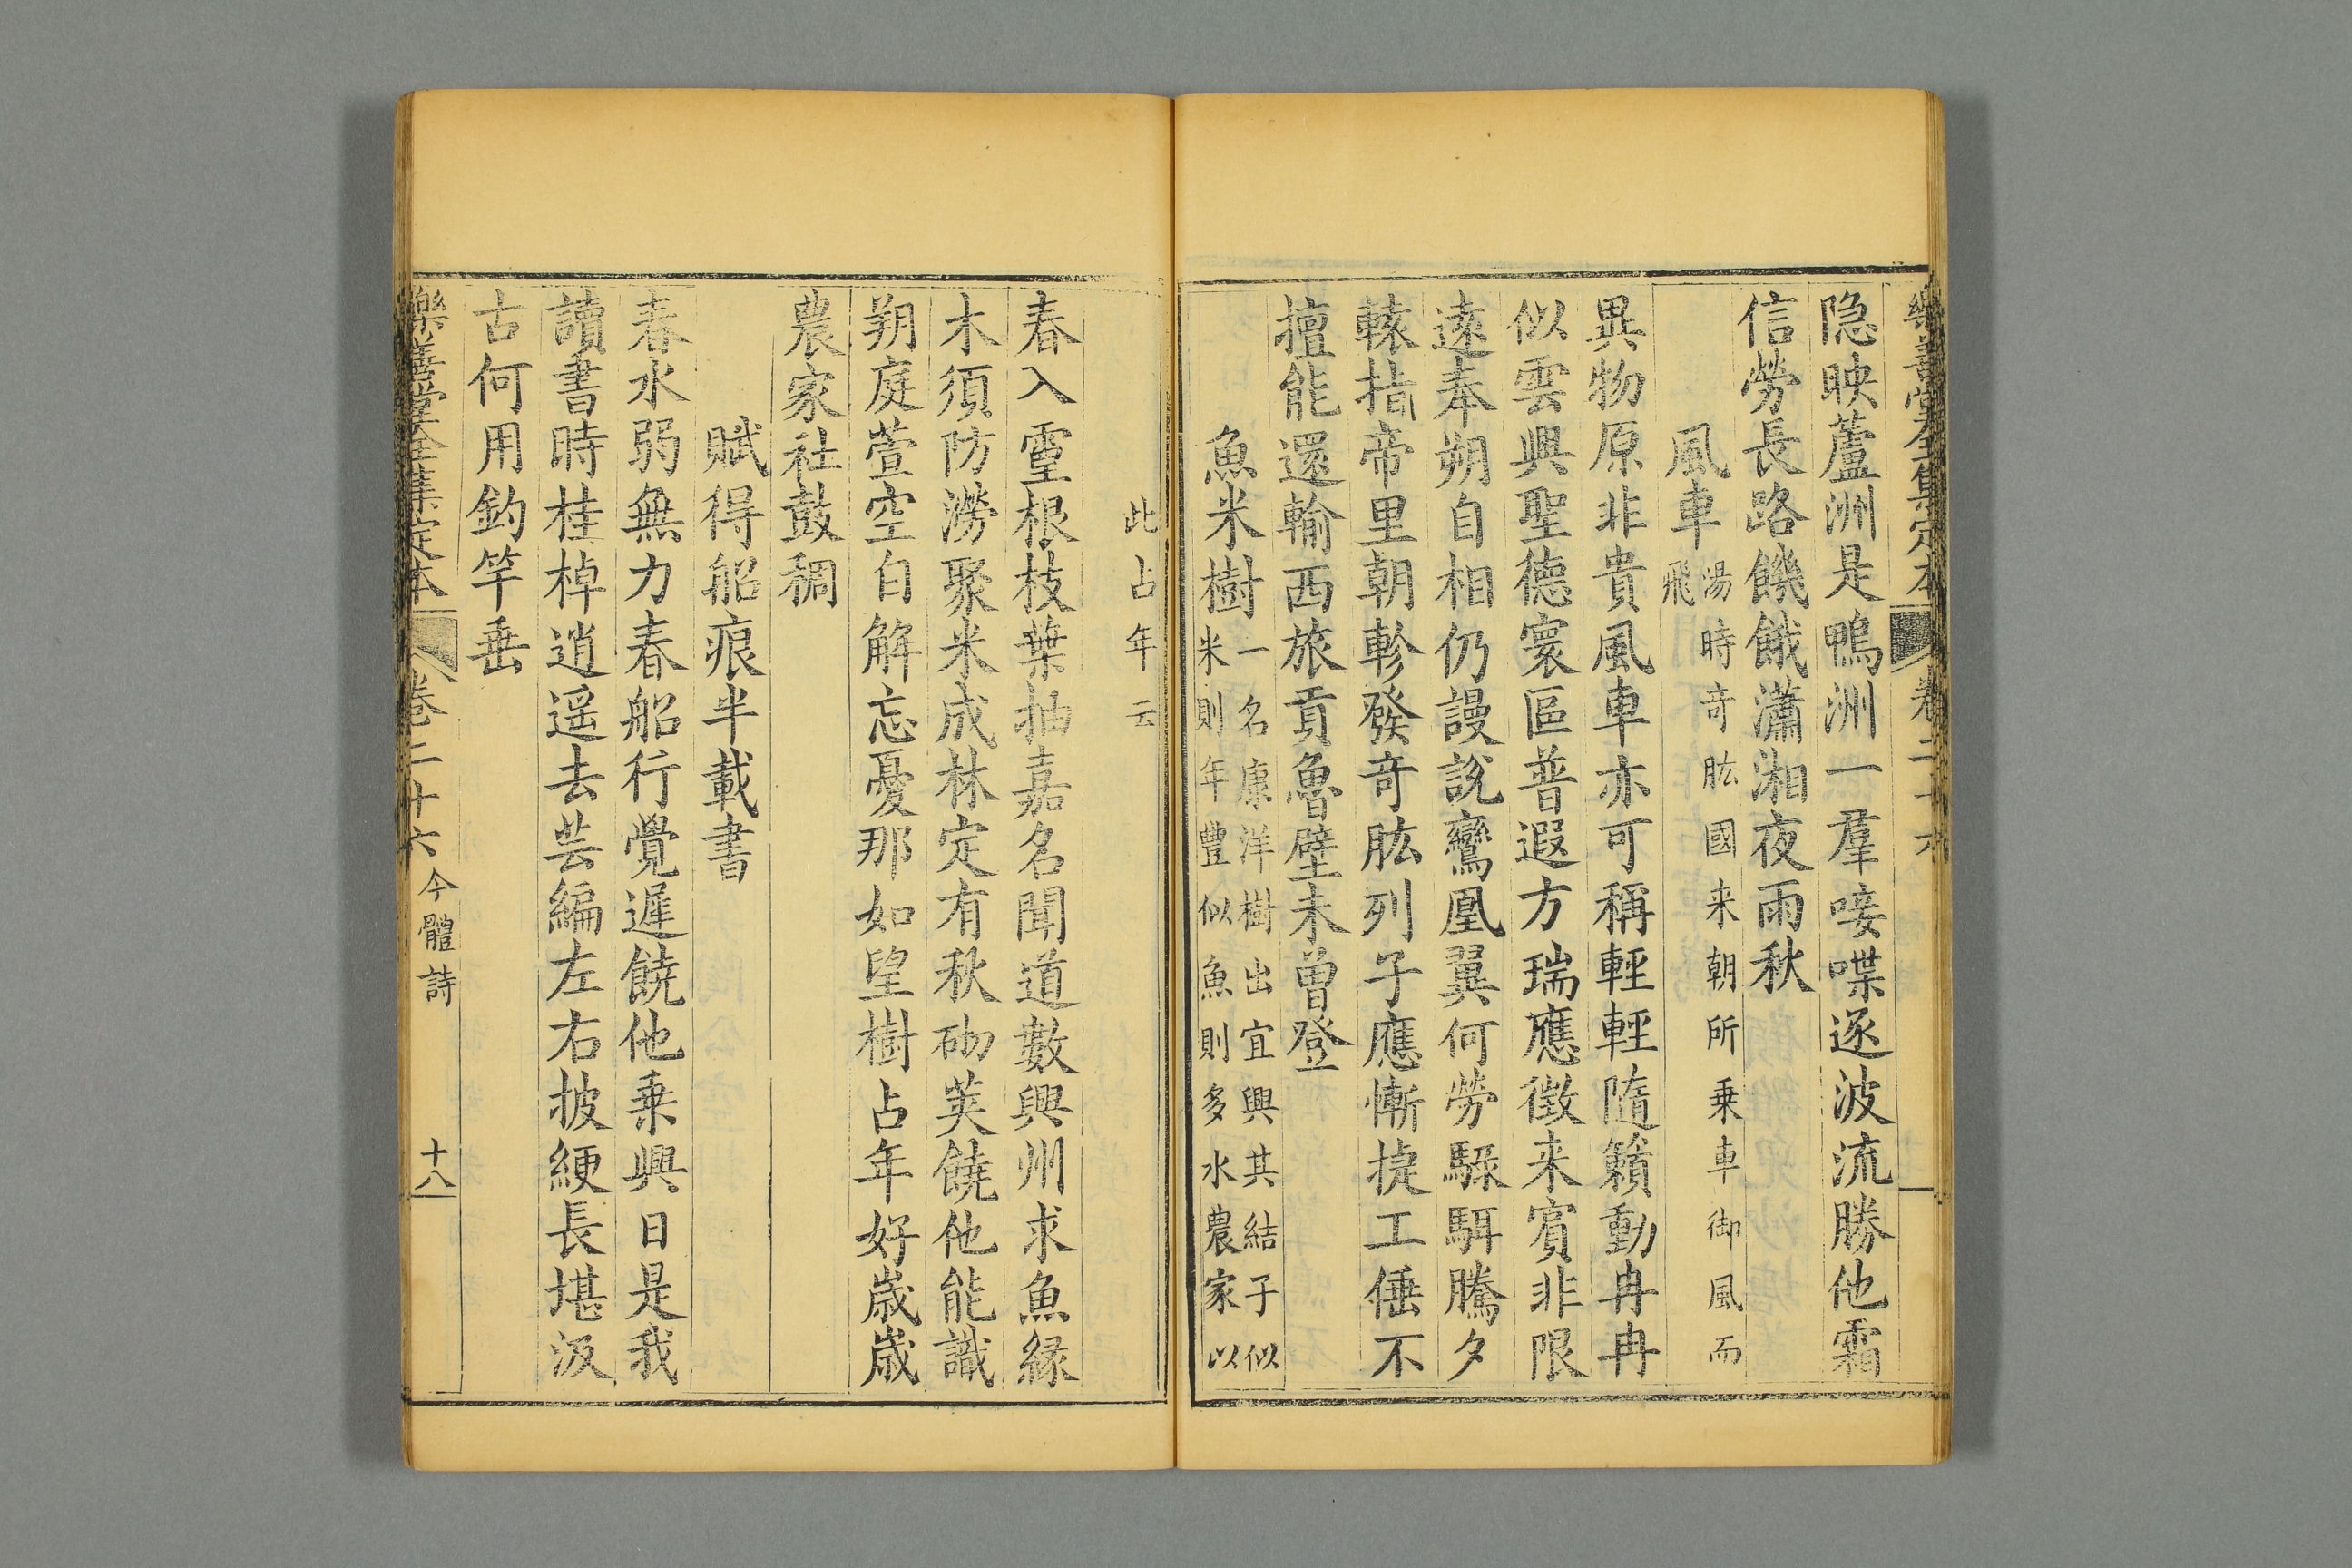 樂善堂全集定本 卷二十六
隐映蘆洲是鴨洲一羣唼喋逐波流勝他霜
信勞長路饑餓瀟湘夜雨秋
風車湯時竒肱國来朝所乗車御風而
飛
異物原非貴風車亦可稱輕輕隨籟動冉冉
似雲興聖德寰區普遐方瑞應徴来賓非限
遠奉朔自相仍謾說鸞凰翼何勞騄駬騰夕
轅指帝里朝軫發竒肱列子應慚捷工倕不
擅能還輸西旅貢魯壁未曾登
魚米樹一名康洋樹出宜興其結子似
米則年豐似魚則多水農家以
此占年云
春入靈根枝葉抽嘉名聞道數興州求魚緣
木須防澇聚米成林定有秋砌莢饒他能識
朔庭萱空自解忘憂那如望樹占年好歲歲
農家社鼓稠
賦得船痕半載書
春水弱無力春船行覺遲饒他乗興日是我
讀書時桂棹逍遥去芸編左右披綆長堪汲
古何用釣竿垂
樂善堂全集定本 卷二十六 今體詩 十八